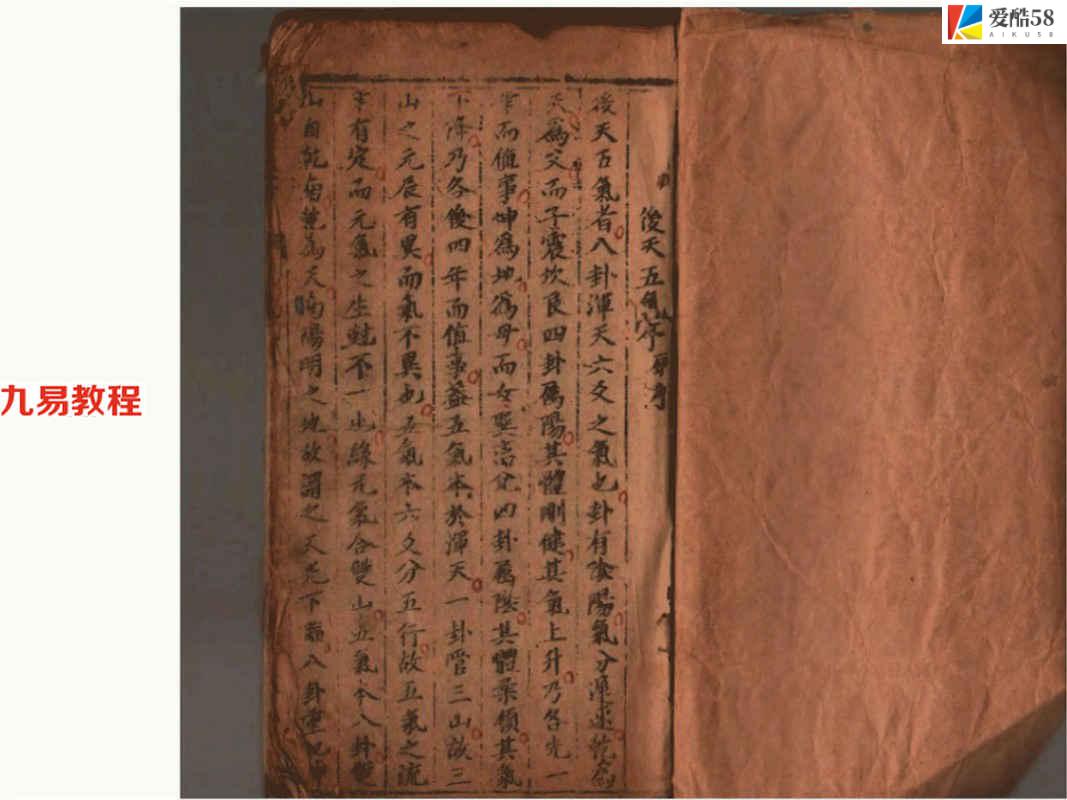 爱酷58
AIKU58
九易教程
後天五氣序
後天五氣者八卦渾天六爻之氣也卦有陰陽氣分運逆乾為
天爲父而子震坎艮四卦爲陽其體剛健其氣上升乃各先一
年而値事坤爲地爲母而女巽离兌四卦爲陰其體柔順其氣
下降乃各後四年而値事蓋五氣本於渾天一卦管三山故三
山之元辰有異而氣不異也五氣本六爻分五行故五氣之流
年有定而元氣之生尅不一也緣元氣合雙山五氣本八卦
山自乾爲天陽明之地故謂之天元下八卦